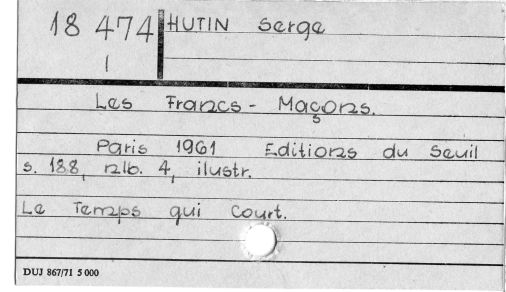 18 474 HUTIN Serge
1
Les Francs - Maçons.
Paris 1961 Editions du Seuil
s. 188, nlb. 4, ilustr.
Le Temps qui Court.
DUJ 867/71 5 000